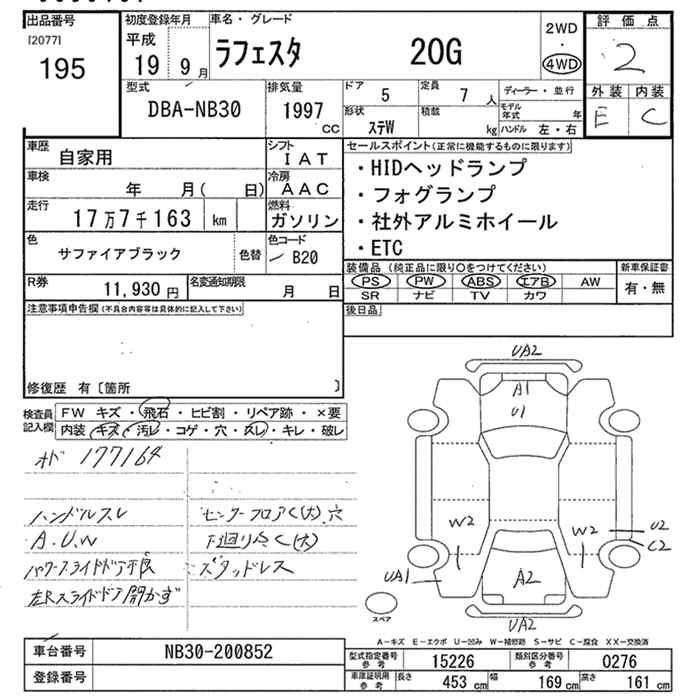 出品番号
[2077]
195
初度登録年月
平成
19 9月
車名・グレード
ラフェスタ 20G
2WD
・
4WD
評価点
2
外装 内装
E C
型式
DBA-NB30
排気量
1997 CC
ドア 5
定員 7 人
形状 ステW
積載 kg
ディーラー・並行
モデル年式 年
ハンドル 左・右
車歴 自家用
シフト IAT
車検 年 月( 日)
冷房 AAC
走行 17万7千163 km
燃料 ガソリン
色 サファイアブラック 色替
色コード B20
R券 11,930 円
名変通知期限 月 日
セールスポイント(正常に機能するものに限ります)
・HIDヘッドランプ
・フォグランプ
・社外アルミホイール
・ETC
装備品 (純正品に限り○をつけてください)
PS PW ABS エアB AW
SR ナビ TV カワ
新車保証書
有・無
後日品
注意事項申告欄(不具合内容等は具体的に記入して下さい)
修復歴 有〔箇所 〕
検査員記入欄
FW キズ・飛石・ヒビ割・リペア跡・×要
内装 キズ・汚レ・コゲ・穴・スレ・キレ・破レ
オド 177164
ハンドルスレ
A.U.W
パワースライドドア不良
左Rスライドドア開かず
センターフロアく(大)穴
下廻りさく(大)
スタッドレス
UA2
A1
U1
W2
W2
U2
C2
UA1
A2
UA2
スペア
A－キズ E－エクボ U－凹み W－補修跡 S－サビ C－腐食 XX－交換済
車台番号 NB30-200852
登録番号
型式指定番号参考 15226
類別区分番号参考 0276
車庫証明用参考
長さ 453 cm
幅 169 cm
高さ 161 cm